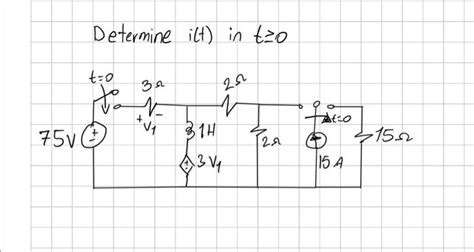 Determine i(t) in t≥0
t=0
3Ω
2Ω
+ V₁ -
1H
t=0
75V
+
-
2Ω
15Ω
3V₁
15 A